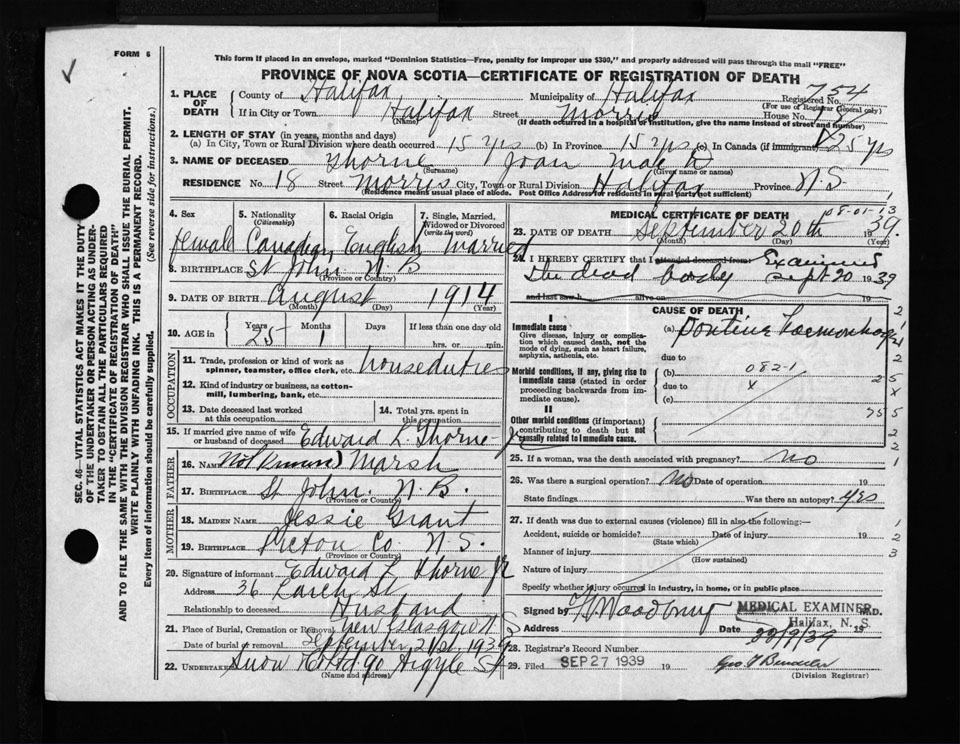 FORM 6
This form if placed in an envelope, marked "Dominion Statistics—Free, penalty for improper use $300," and properly addressed will pass through the mail "FREE"
PROVINCE OF NOVA SCOTIA—CERTIFICATE OF REGISTRATION OF DEATH
SEC. 46—VITAL STATISTICS ACT MAKES IT THE DUTY
OF THE UNDERTAKER OR PERSON ACTING AS UNDER-
TAKER TO OBTAIN ALL THE PARTICULARS REQUIRED
IN THE "CERTIFICATE OF REGISTRATION OF DEATH"
AND TO FILE THE SAME WITH THE DIVISION REGISTRAR WHO SHALL ISSUE THE BURIAL PERMIT.
WRITE PLAINLY WITH UNFADING INK. THIS IS A PERMANENT RECORD.
Every item of information should be carefully supplied. (See reverse side for instructions.)
1. PLACE OF DEATH
County of Halifax Municipality of Halifax Registered No. 754
(For use of Registrar General only)
If in City or Town Halifax Street Morris House No.
(Name) (If death occurred in a hospital or institution, give the name instead of street and number)
2. LENGTH OF STAY (in years, months and days)
(a) In City, Town or Rural Division where death occurred 15 yrs (b) In Province 15 yrs (c) In Canada (if immigrant) 25 yrs
3. NAME OF DECEASED Thorne Joan Mae
(Surname) (Given name or names)
RESIDENCE No. 18 Street Morris City, Town or Rural Division Halifax Province N.S.
(Residence means usual place of abode. Post Office Address for Residents in rural parts not sufficient)
4. Sex female
5. Nationality (Citizenship) Canadian
6. Racial Origin English
7. Single, Married, Widowed or Divorced (write the word) Married
8. BIRTHPLACE St John N B
(Province or Country)
9. DATE OF BIRTH August 1914
(Month) (Day) (Year)
10. AGE in Years 25 Months 1 Days If less than one day old hrs. or min.
OCCUPATION
11. Trade, profession or kind of work as spinner, teamster, office clerk, etc. houseduties
12. Kind of industry or business, as cotton-mill, lumbering, bank, etc.
13. Date deceased last worked at this occupation
14. Total yrs. spent in this occupation
15. If married give name of wife or husband of deceased Edward L Thorne Jr
FATHER
16. NAME (Not Known) Marsh
17. BIRTHPLACE St John. N.B.
(Province or Country)
MOTHER
18. MAIDEN NAME Jessie Grant
19. BIRTHPLACE Pictou Co. N.S.
(Province or Country)
20. Signature of informant Edward L Thorne Jr
Address 36 St
Relationship to deceased Husband
21. Place of Burial, Cremation or Removal New Glasgow N S
Date of burial or removal September 21st. 1939
22. UNDERTAKER Snow 90 Argyle St
(Name and address)
MEDICAL CERTIFICATE OF DEATH
08-01-13
23. DATE OF DEATH September 20th 1939.
(Month) (Day) (Year)
24. I HEREBY CERTIFY that I attended deceased from Examined
the dead body Sept 20 1939
and last saw h alive on 19
CAUSE OF DEATH
I
Immediate cause
Give disease, injury or complication which caused death, not the mode of dying, such as heart failure, asphyxia, asthenia, etc.
(a) Pontine haemorrhage
due to
Morbid conditions, if any, giving rise to immediate cause (stated in order proceeding backwards from immediate cause).
(b) 082-1
due to X
(c)
II
Other morbid conditions (if important) contributing to death but not causally related to immediate cause.
25. If a woman, was the death associated with pregnancy? no
26. Was there a surgical operation? no Date of operation 19
State findings Was there an autopsy? yes
27. If death was due to external causes (violence) fill in also the following:
Accident, suicide or homicide? Date of injury 19
(State which)
Manner of injury
(How sustained)
Nature of injury
Specify whether injury occurred in industry, in home, or in public place
Signed by Woodbury M.D.
MEDICAL EXAMINER
Halifax, N. S.
Address Date 20/9/39 19
28. Registrar's Record Number
29. Filed SEP 27 1939 19
(Division Registrar)